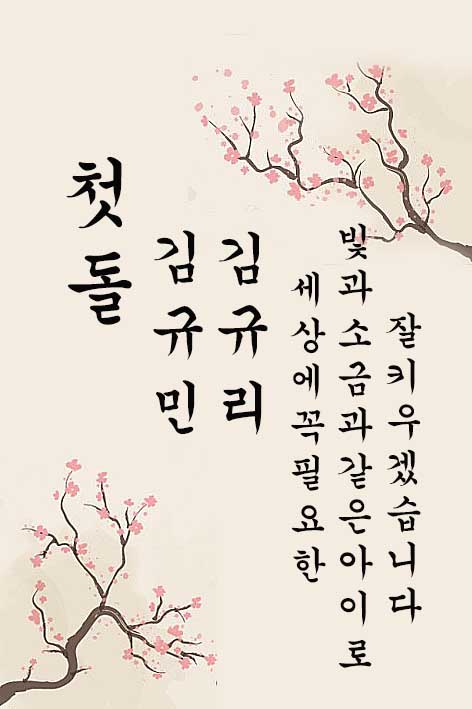 첫돌
김규민
김규리
세상에꼭필요한
빛과소금과같은아이로
잘키우겠습니다